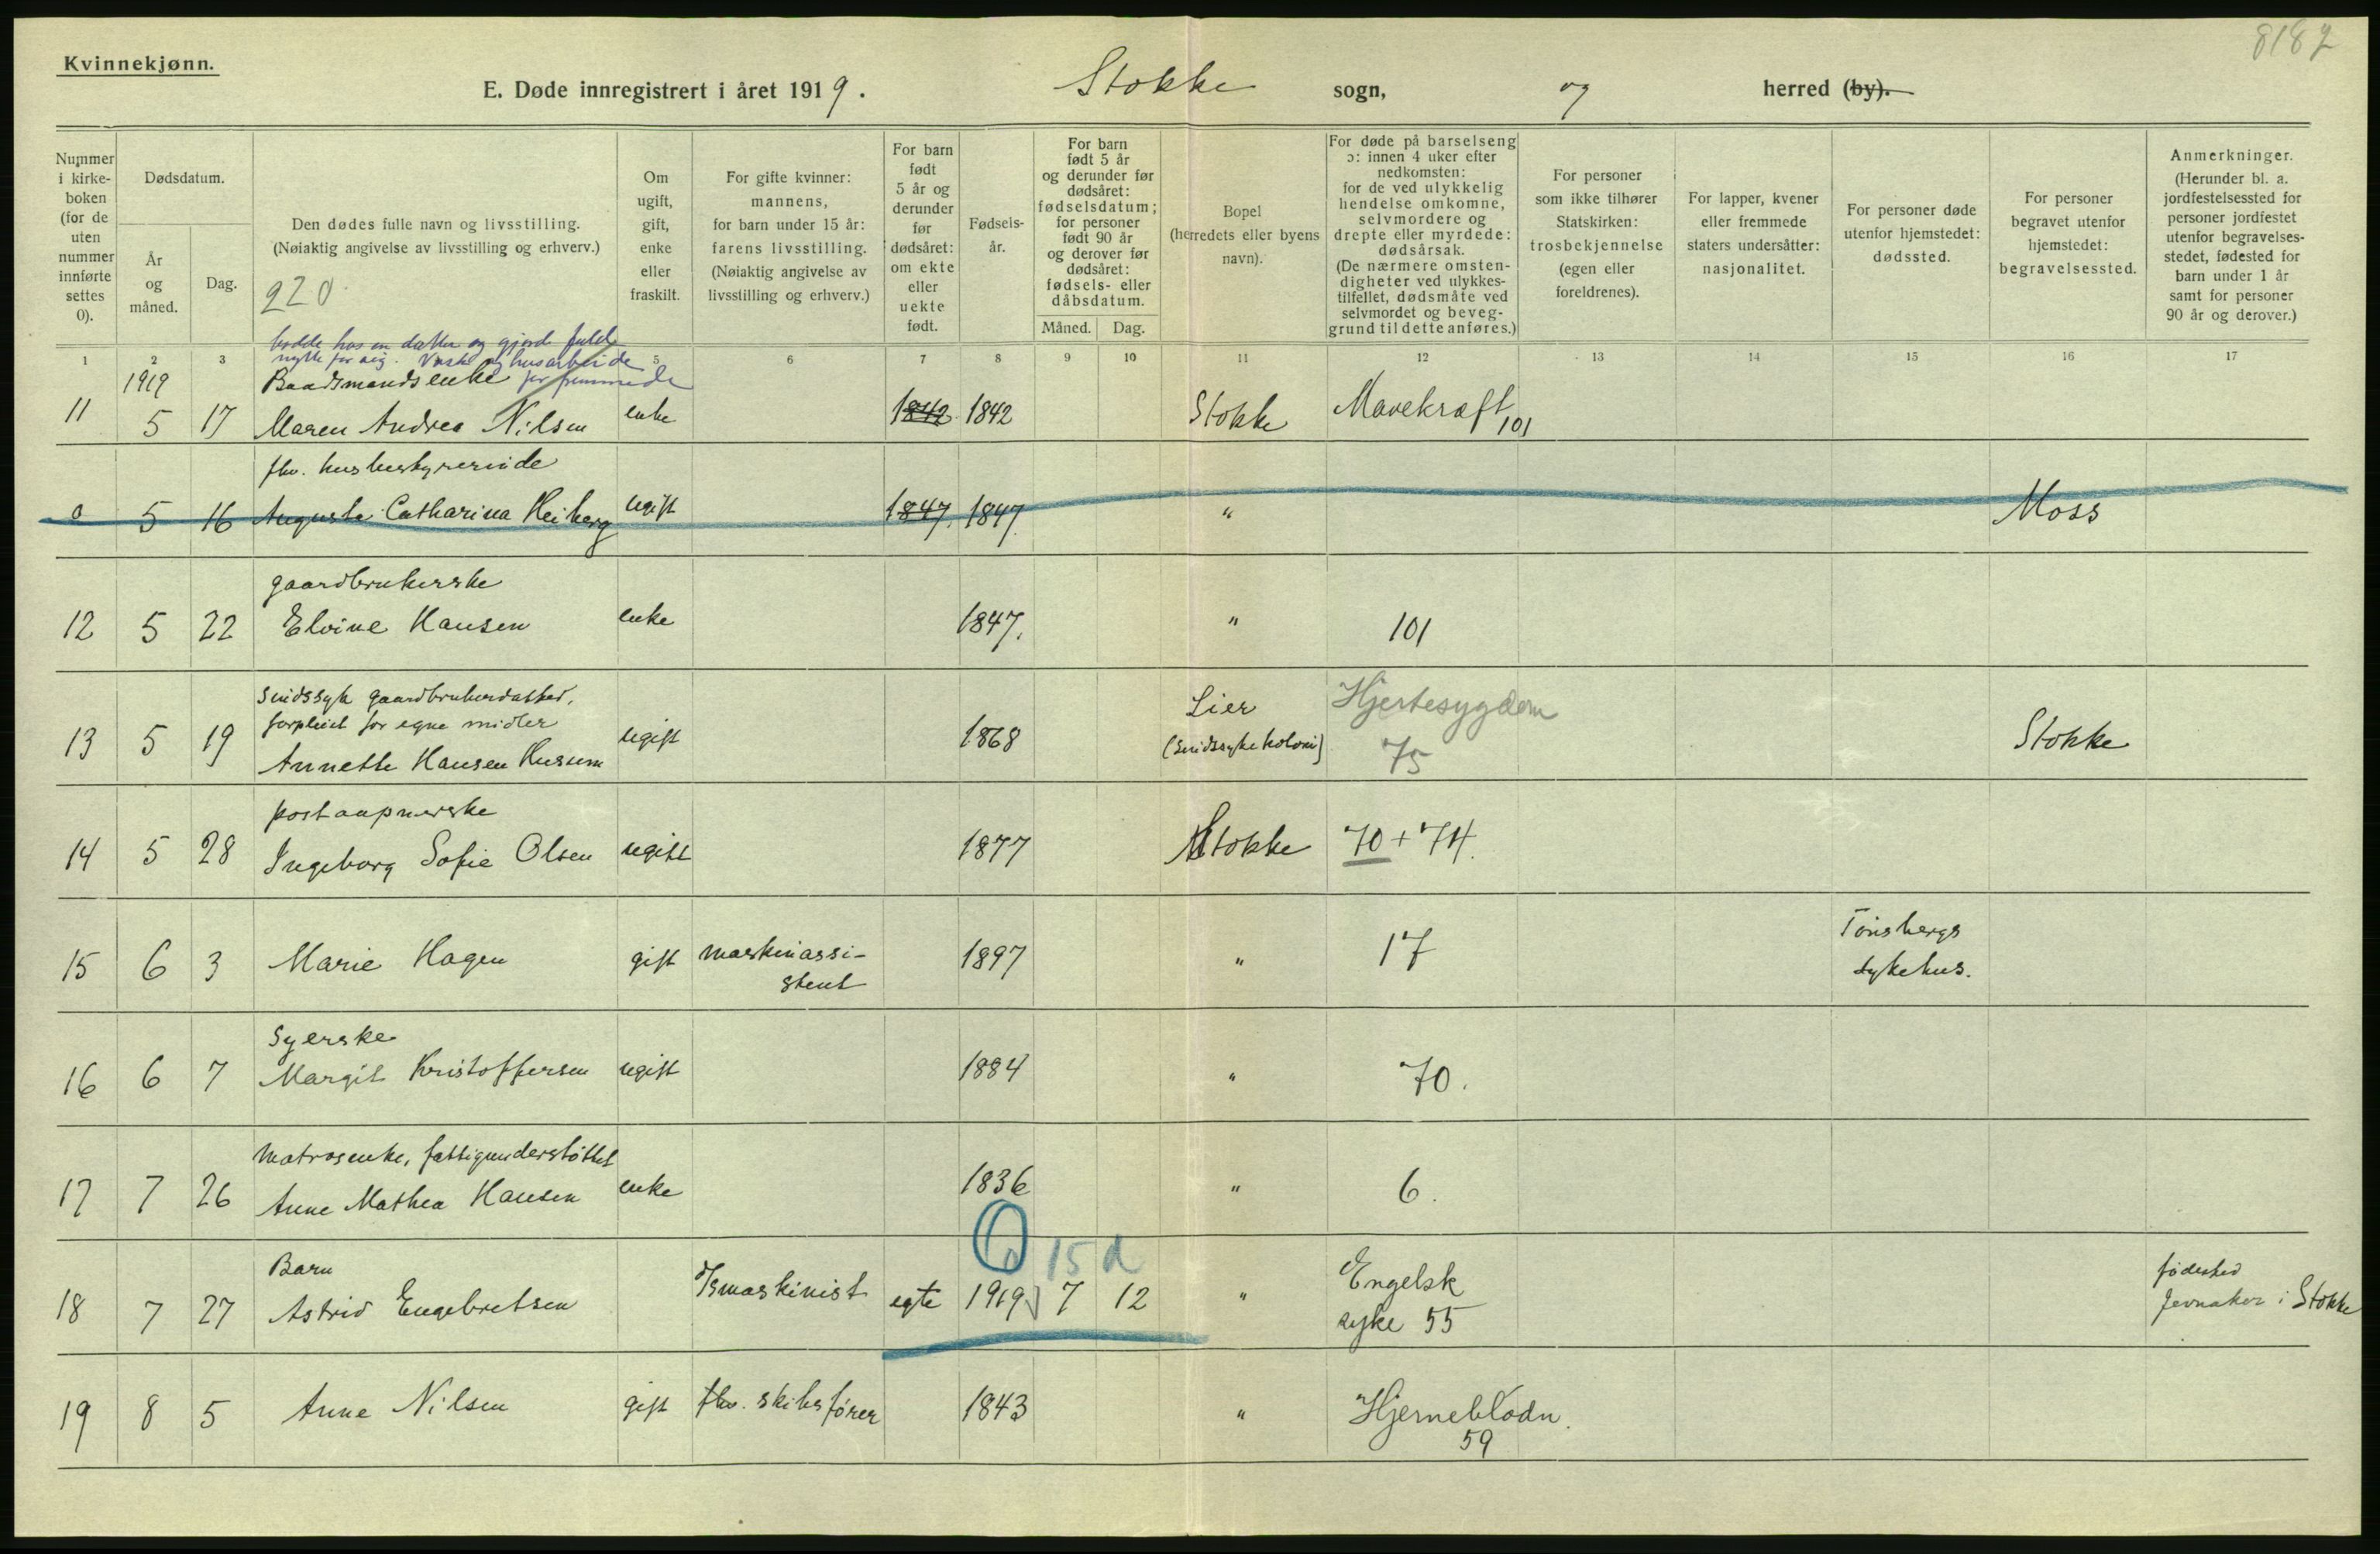 8182
Kvinnekjønn.
E. Døde innregistrert i året 1919. Stokke sogn, og herred (by).
Nummer i kirke-boken (for de uten nummer innførte settes 0).
Dødsdatum.
År og måned.
Dag.
Den dødes fulle navn og livsstilling.
(Nøiaktig angivelse av livsstilling og erhverv.)
220
Om ugift, gift, enke eller fraskilt.
For gifte kvinner: mannens, for barn under 15 år: farens livsstilling. (Nøiaktig angivelse av livsstilling og erhverv.)
For barn født 5 år og derunder før dødsåret: om ekte eller uekte født.
Fødsels-år.
For barn født 5 år og derunder før dødsåret: fødselsdatum; for personer født 90 år og derover før dødsåret: fødsels- eller dåbsdatum.
Måned. Dag.
Bopel (herredets eller byens navn).
For døde på barselseng ɔ: innen 4 uker efter nedkomsten: for de ved ulykkelig hendelse omkomne, selvmordere og drepte eller myrdede: dødsårsak. (De nærmere omsten-digheter ved ulykkes-tilfellet, dødsmåte ved selvmordet og beveg-grund til dette anføres.)
For personer som ikke tilhører Statskirken: trosbekjennelse (egen eller foreldrenes).
For lapper, kvener eller fremmede staters undersåtter: nasjonalitet.
For personer døde utenfor hjemstedet: dødssted.
For personer begravet utenfor hjemstedet: begravelsessted.
Anmerkninger. (Herunder bl. a. jordfestelsessted for personer jordfestet utenfor begravelses-stedet, fødested for barn under 1 år samt for personer 90 år og derover.)
1 2 3 5 6 7 8 9 10 11 12 13 14 15 16 17
bodde hos en datter og gjorde fuld
nytte for sig. Vask og husarbeide
for fremmede
1919 Baadsmandsenke
11 5 17 Maren Andrea Nilsen enke 1842 1842 Stokke Mavekræft 101
fhv. husbestyrerinde
0 5 16 Augusta Catharina Heiberg ugift 1847. 1847. " Moss
gaardbrukerske
12 5 22 Elvine Hansen enke 1847. " 101
sindssyk gaardbrukerdatter,
forpleiet for egne midler
13 5 19 Annette Hansen Husum ugift 1868 Lier (sindssykekoloni) Hjertesygdom 75 Stokke
postaapnerske
14 5 28 Ingeborg Sofie Olsen ugift 1877 Stokke 70 + 74.
15 6 3 Marie Hagen gift maskinassi-stent 1897 " 17 Tønsbergs sykehus.
Syerske
16 6 7 Margit Kristoffersen ugift 1884 " 70.
Matrosenke, fattigunderstøttet
17 7 26 Anne Mathea Hansen enke 1836 " 6.
0 15 d
Barn
18 7 27 Astrid Engebretsen maskinist egte 1919 7 12 " Engelsk syke 55 fødested Jevnaker i Stokke
19 8 5 Anne Nilsen gift fhv. skibsfører 1843 " Hjerneblødn. 59